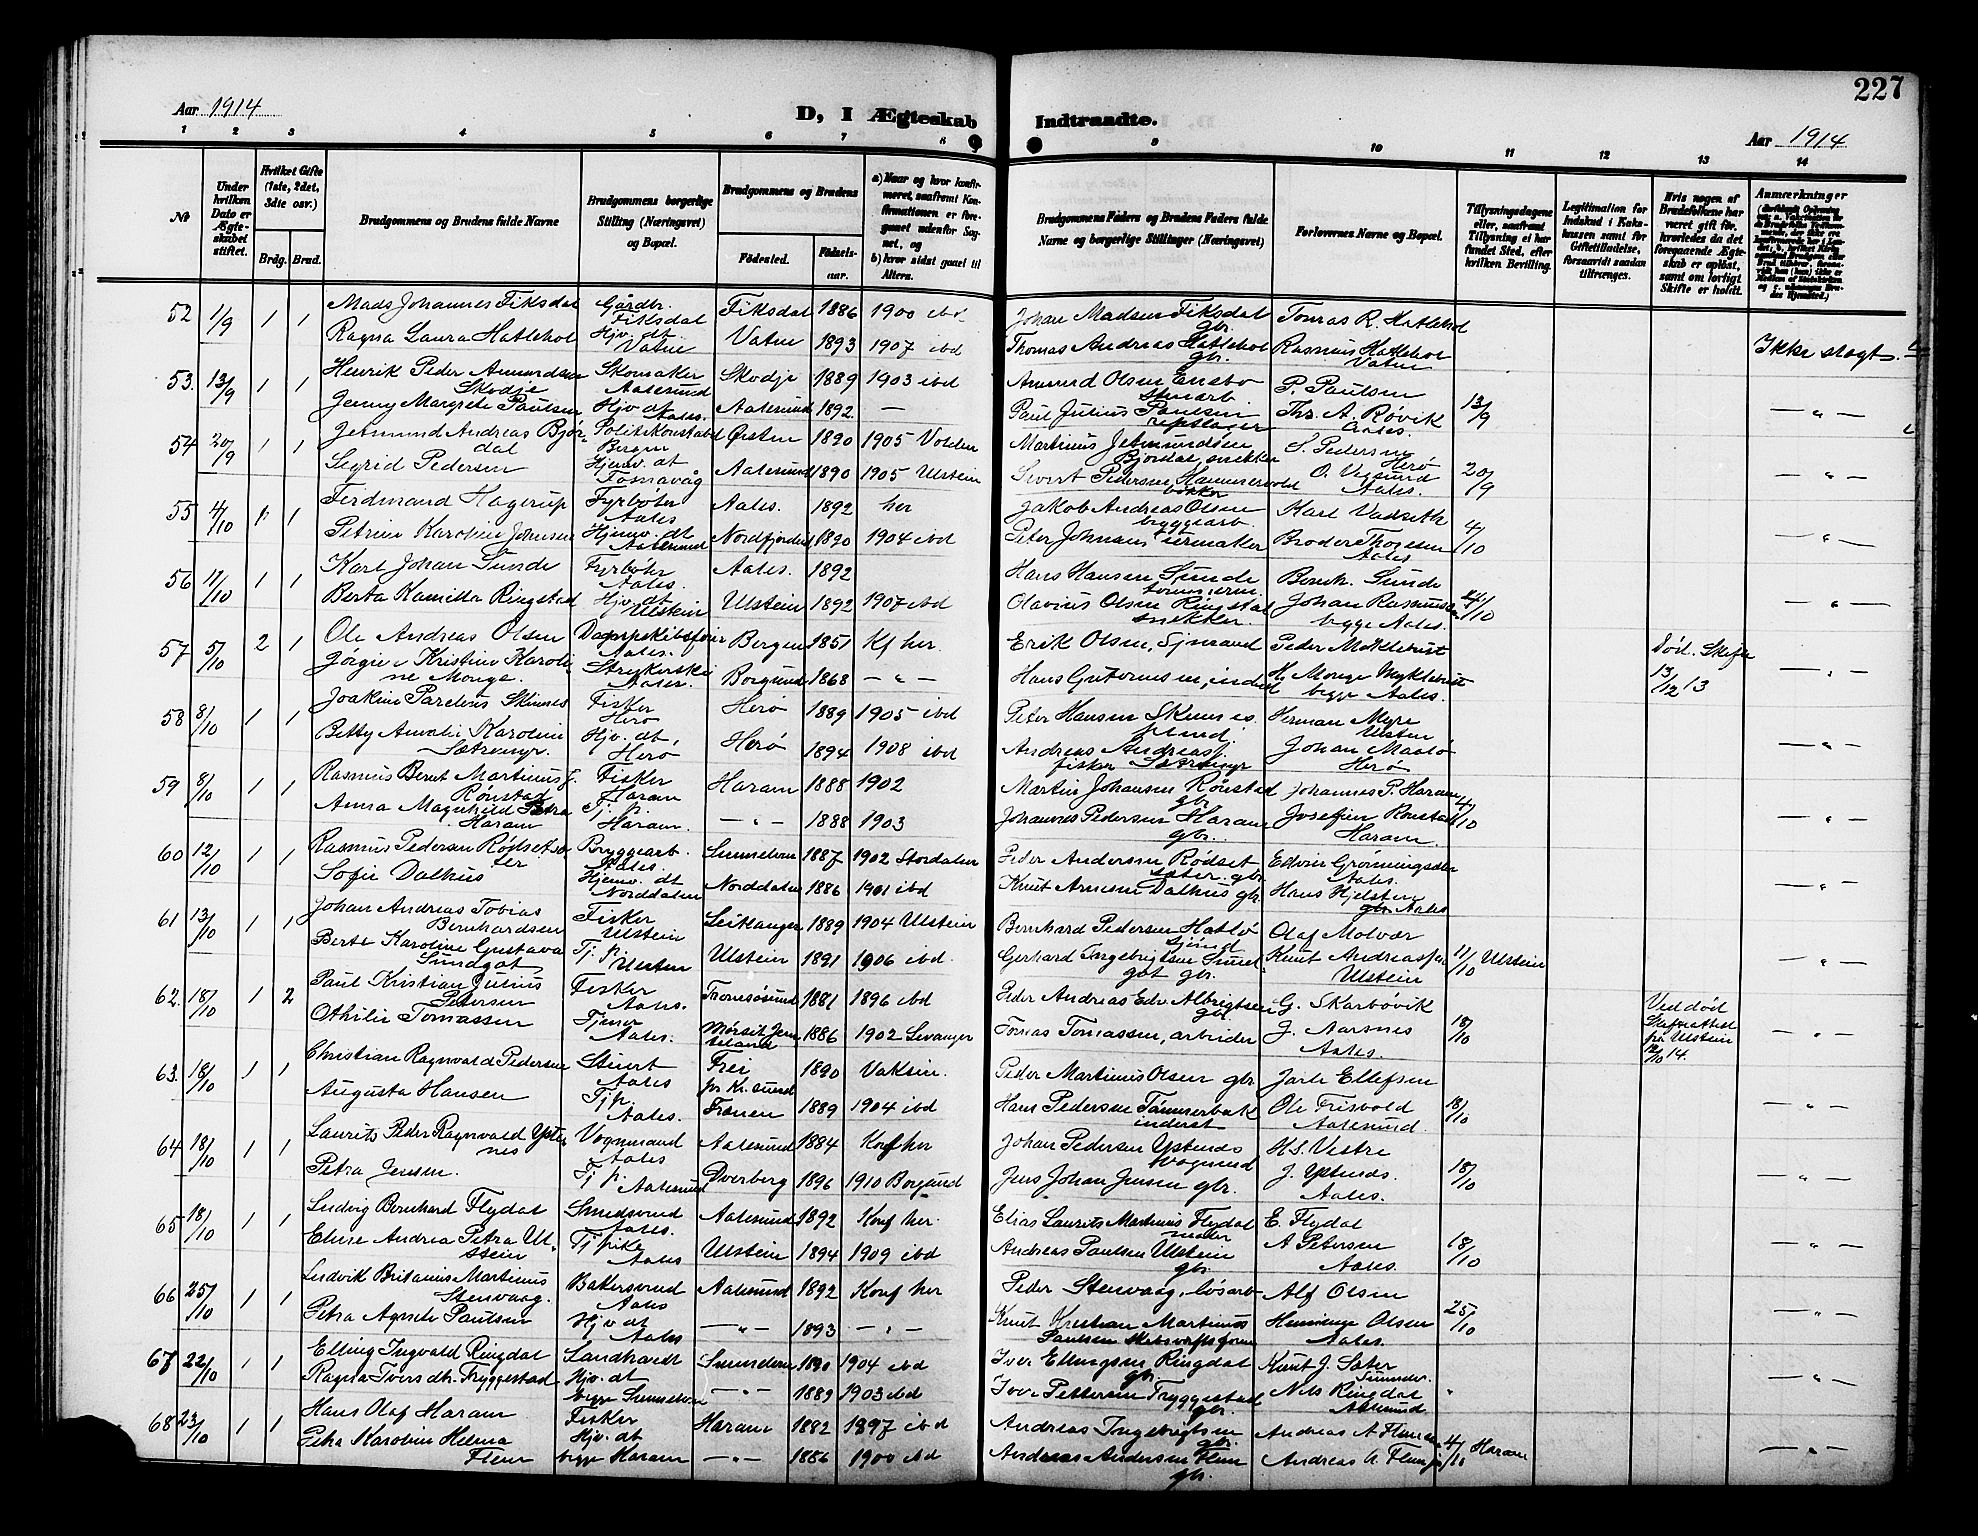 Aar 1914
D, I Ægteskab
Indtraadte.
227
Aar 1914
1 2 3 4 5 6 7 8 9 10 11 12 13 14
№
Under hvilken Dato er Ægteskabet stiftet.
Hvilket Gifte (1ste, 2det, 3die osv.)
Brdg. Brud.
Brudgommens og Brudens fulde Navne
Brudgommens borgerlige Stilling (Næringsvei) og Bopæl.
Brudgommens og Brudens
Fødested.
Fødselsaar.
a) Naar og hvor konfirmeret, saafremt Konfirmationen er foregaaet udenfor Sognet, og
b) hvor sidst gaaet til Alters.
Brudgommens Faders og Brudens Faders fulde Navne og borgerlige Stillinger (Næringsvei)
Forlovernes Navne og Bopæl.
Tillysningsdagene eller, saafremt Tillysning ei har fundet Sted, efter hvilken Bevilling.
Legitimation for Indskud i Enkekassen samt for Giftetilladelse, forsaavidt saadan tiltrænges.
Hvis nogen af Brudefolkene har været gift før, hvorledes da det foregaaende Ægteskab er opløst, samt om lovligt Skifte er holdt.
Anmærkninger
52 1/9 1 1 Mads Johannes Fiksdal Gårdbr. Fiksdal Fiksdal 1886 1900 ibd. Johan Madsen Fiksdal gbr. Tomas R. Hatlehol
Ragna Laura Hatlehol Hjv. dt Vatne Vatne 1893 1907 ibd Thomas Andreas Hatlehol gbr. Rasmus Hatlehol Vatne Ikke slægt.
53. 13/9 1 1 Henrik Peder Amundsen Skodje Skomaker Aalesund Skodje 1889 1903 ibd Amund Olsen Ensbo Stenarb. P. Paulsen
Jenny Margrete Paulsen Hjv. dt Aales. Aalesund 1892 — Paul Julius Paulsen repslager Thr. A. Røvik Aales. 13/9 — " —
54 20/9 1 1 Jetmund Andreas Bjørdal Politikonstabel Bergen Ørsten 1890 1905 Volden Martinus Jetmundsen Bjordal, snekker S. Pedersen Herø
Sigrid Pedersen Hjemv. dt Fosnavåg Aalesund 1890 1905 Ulstein Sivert Pedersen bøkker O. Vegsund Aales. 20/9 — " —
55 4/10 1 1 Ferdinand Hagerup Fyrbøter Aales Aales. 1892 her Jakob Andreas Olsen byggearb. Karl Vadseth
Petrine Karoline Johnsen Hjemv. dt Aalesund Nordfjordeid 1890 1904 ibd Peter Broder Thoresen Aales 4/10 — " —
56 11/10 1 1 Karl Johan Sunde Fyrbøter Aales. Aales. 1892 Hans Hansen Sunde Bernh. Sunde
Berta Kamilla Ringstad Hjv. dt Ulstein Ulstein 1892 1907 ibd Olavius Olsen Ringstad snekker. Johan Rasmussen begge Aales. — " —
57 5/10 2 1 Ole Andreas Olsen Aales. Bergen 1851 Kf her. Erik Olsen, Peder Myklebust Død. Skifte
Jørgine Kristine Karoline Monge. Aales. Borgund 1868 — " — H. Monge Myklebust begge Aales. 13/12 13 — " —
58 8/10 1 1 Joakim Fisker Herø Herø 1889 1905 ibd Peter Hansen Herman Myre Ulsten
Betty Amalie Karoline Sætremyr. Hjv. dt, Herø Herø 1894 1908 ibd Andreas Andreasf. fisker Sætremyr Johan Maalø Herø — " —
59 8/10 1 1 Rasmus Bernt Martinus J. Rønstad Fisker Haram Haram 1888 1902 Martin Johansen Rønstad gbr Johannes P. Haram
Anna Magnhild Petra Haram Tj. p. Haram. — " — 1888 1903 Johannes Pedersen Haram gbr. Josefine Rønstad Haram. 4/10 — " —
60 12/10 1 1 Rasmus Pedersen Rødsetsæter Bryggearb. Aales. Sunnelven 1887 1902 Stordalen Peder Andersen Rødsetsæter. gbr. Edvin Grønningsæter Aales.
Sofie Dalhus Hjemv. dt Norddalen Norddalen 1886 1901 ibd Knut Arnesen Dalhus gbr. Hans Hjelsten Aales — " —
61 13/10 1 1 Johan Andreas Tobias Bernhardsen Fisker Ulstein Leikanger 1889 1904 Ulstein Bernhard Pedersen Hatlø Olaf Molvær
Berte Karoline Gustava Sundgot Tj. p. Ulsten Ulstein 1891 1906 ibd. Gerhard Ingebrigtsen Sundgot gbr. Knut Andreassen Ulstein 11/10 Ulstein — " —
62. 18/10 1 2 Paul Kristian Julius Petersen Fisker Aales. Tromsøsund 1881 1896 ibd Peder Andreas Edv. Albrigtsen gbr. G. Skarbøvik Ved død
Othilie Tomassen Tjener Aales. 1886 1902 Levanger Tomas Tomassen, arbeider J. Aarsnes Aales. 18/10 Skifteattest fra Ulstein 12/10 14. — " —
63. 18/10 1 1 Christian Ragnvald Pedersen Stuert Aales Frei pr Kr. sund 1890 Peder Martinus Olsen gbr Jarle Ellefsen
Augusta Hansen Tj. p. Aales. Frænen 1889 1904 ibd Hans Pedersen Tømmerbak inderst Ole Frisvold Aalesund. 18/10 — " —
64 18/10 1 1 Laurits Peder Ragnvald Ystenes Vognmand Aales Aalesund 1884 Konf her Johan Pedersen Ystenes Vognmand H. S. Vestre
Petra Jensen. Tj p. Aalesund Dverberg 1896 1910 Borgund Jens Johan Jensen gbr. J. Ystenes. Aales. 18/10 — " —
65 18/10 1 1 Ludvig Bernhard Flydal Smedsvend Aales. Aalesund 1892 Konf her. Elias Laurits Martinus Flydal maler E. Flydal
Eline Andrea Petra Ulstein Tj. pike Aales Ulstein 1894 1909 ibd Andreas Paulsen Ulstein gbr. A Petersen Aales. 18/10 — " —
66 25/10 1 1 Ludvik Britanus Martinus Stenvaag. Bakersvend Aales Aalesund 1892 Konf her Peder Stenvaag, løsarb Alf Olsen
Petra Agnete Paulsen Hjv dt Aales — " — 1893 — " — Knut Kristian Martinus Paulsen Henninge Olsen Aales. 25/10 — " —
67 22/10 1 1 Elling Ingvald Ringdal Landhandl. Sunnelven 1890 1904 ibd Iver Ellingsen Ringdal gbr. Knut J. Sæter Sunnelv.
Ragna Iversdtr. Tryggestad Hjv. dt begge Sunnelven — " — 1889 1903 ibd Iver Pettersen Tryggestad gbr. Nils Ringdal Aalesund. " — " —
68 23/10 1 1 Hans Olaf Haram Fisker Haram 1882 1897 ibd Andreas Ingebrigtsen gbr. Andreas A Flem
Petra Karoline Helma Flem Hjv. dt begge Haram — " — 1886 1900 ibd Andreas Andersen Flem gbr. Andreas A. Flem 4/10 Haram — " —